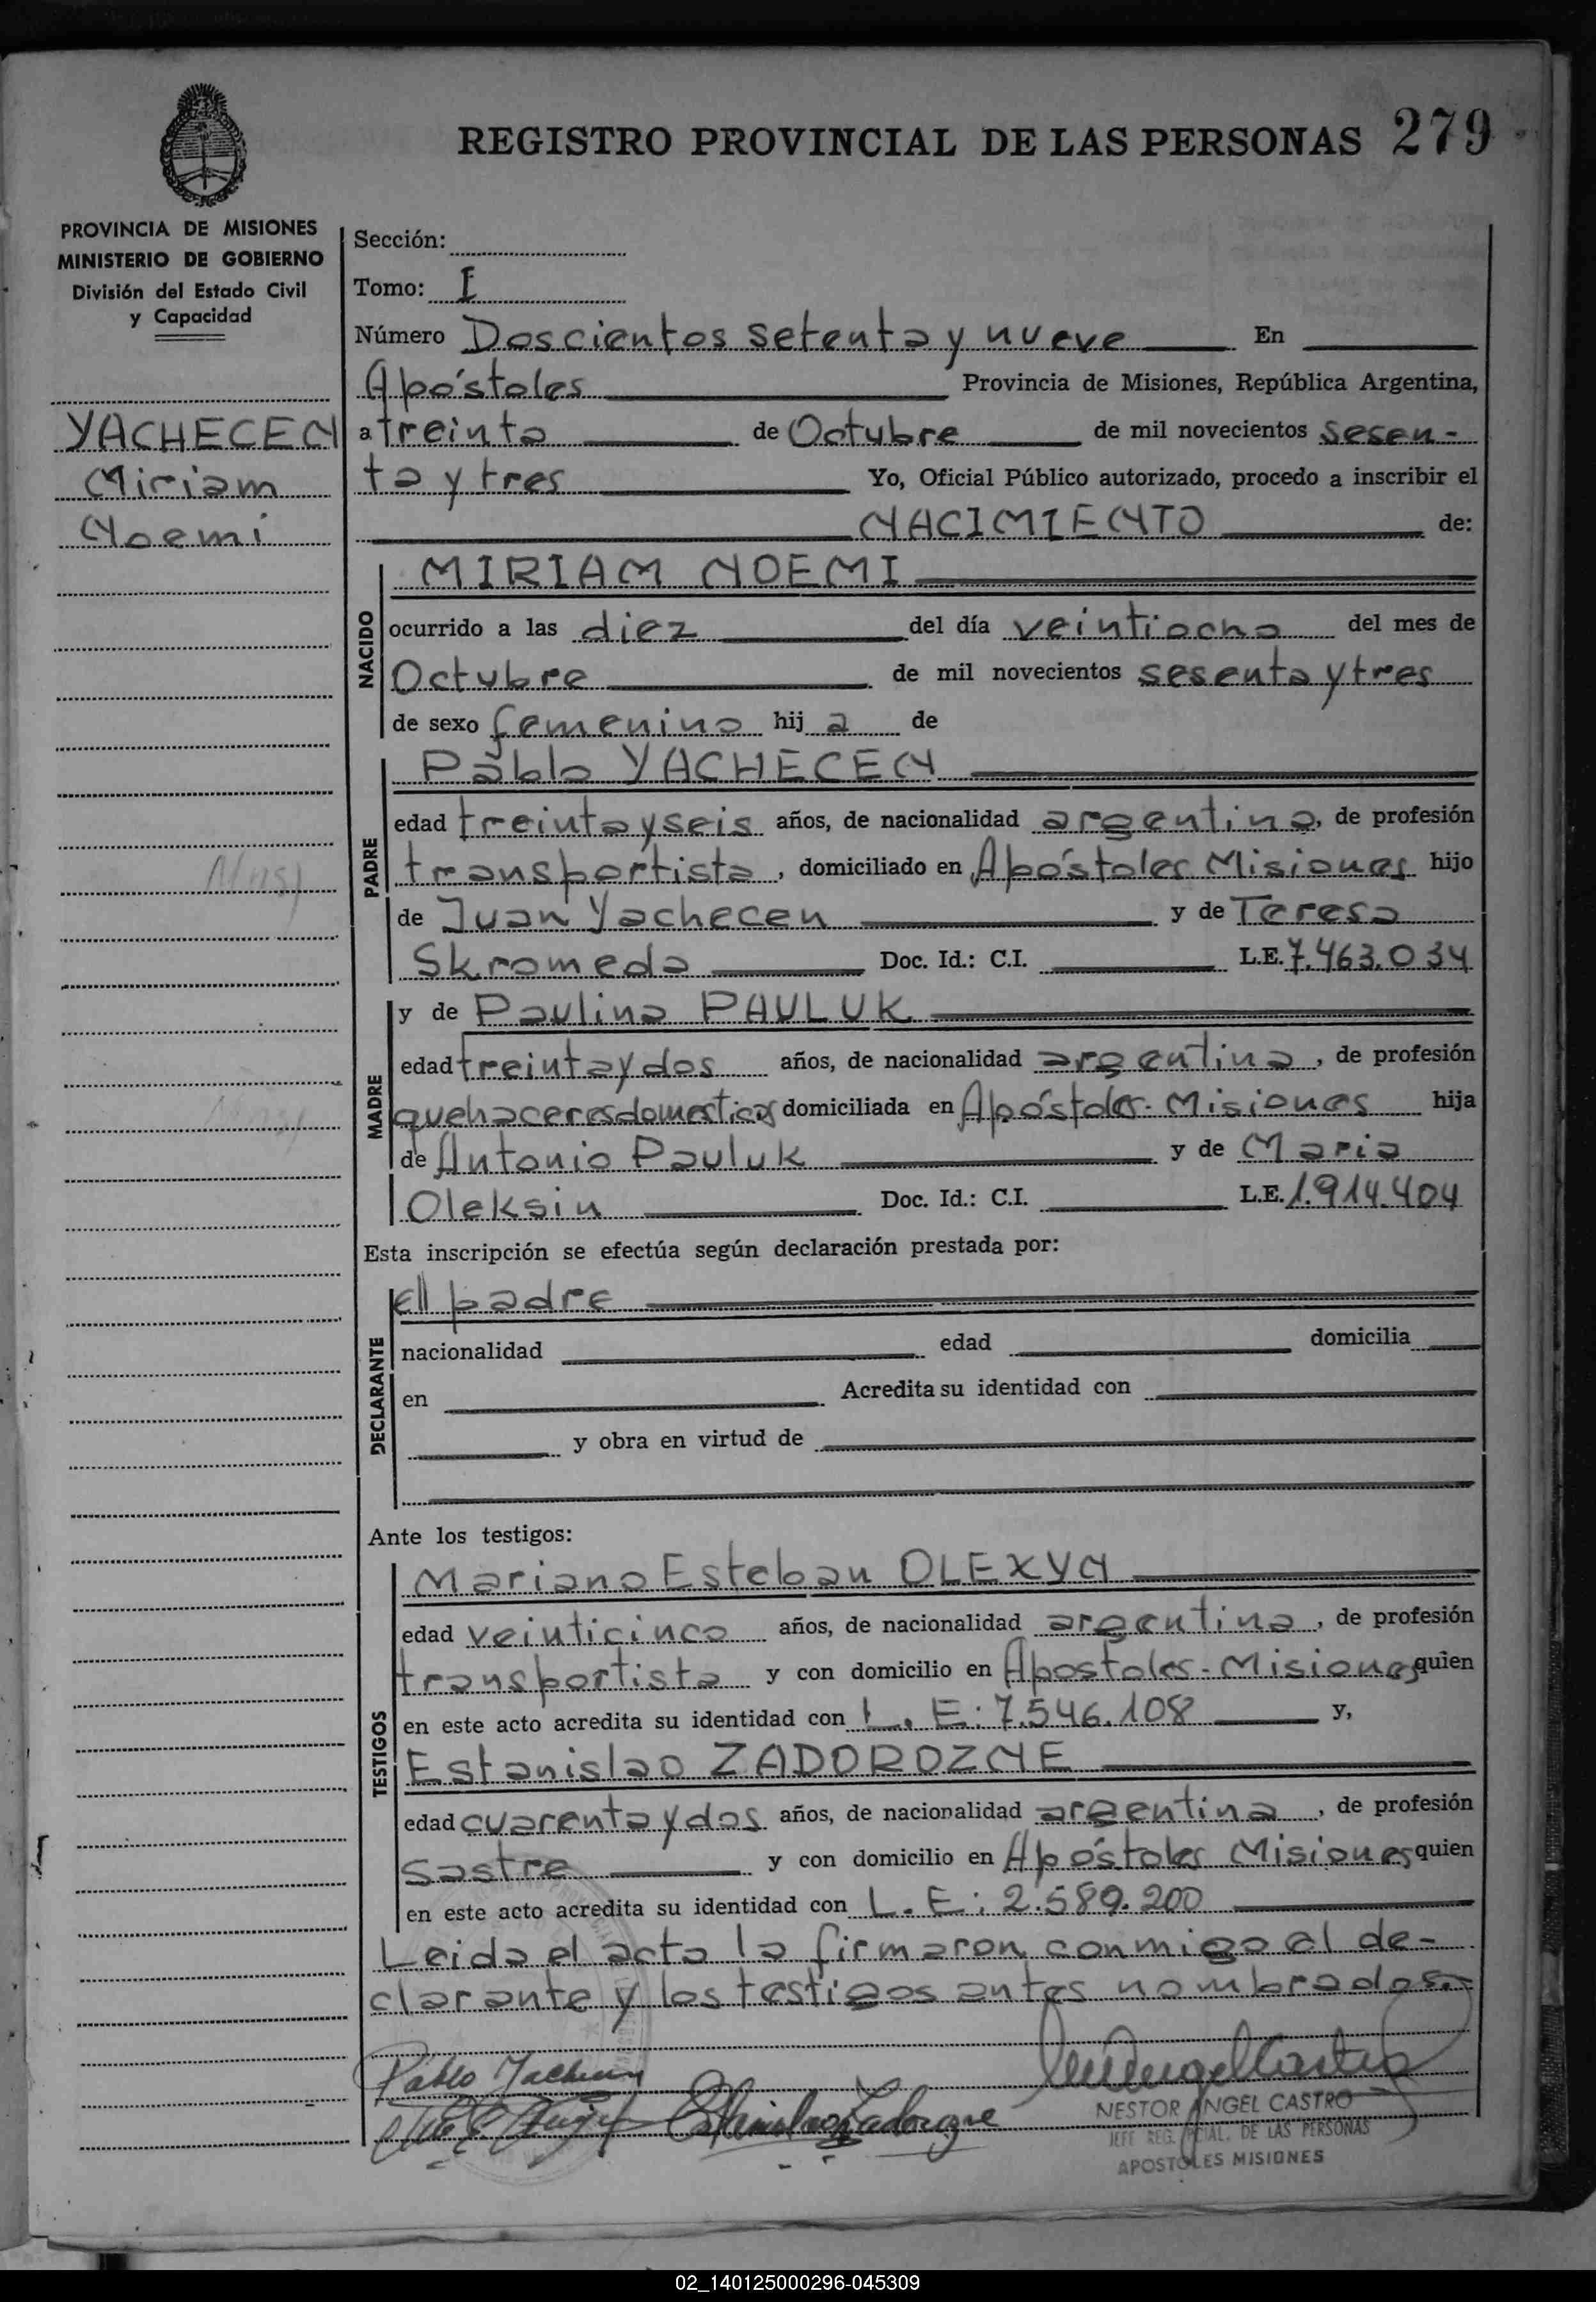 REGISTRO PROVINCIAL DE LAS PERSONAS 279
PROVINCIA DE MISIONES
MINISTERIO DE GOBIERNO
División del Estado Civil
y Capacidad
YACHECEN
Miriam
Noemi
Sección:
Tomo: I
Número Doscientos setenta y nueve En
Apóstoles Provincia de Misiones, República Argentina,
a treinta de Octubre de mil novecientos sesen-
ta y tres Yo, Oficial Público autorizado, procedo a inscribir el
NACIMIENTO de:
NACIDO
MIRIAM NOEMI
ocurrido a las diez del día veintiocho del mes de
Octubre de mil novecientos sesenta y tres
de sexo femenino hij a de
PADRE
Pablo YACHECEN
edad treinta y seis años, de nacionalidad argentina, de profesión
transportista, domiciliado en Apóstoles Misiones hijo
de Juan Yachecen y de Teresa
Skromeda Doc. Id.: C.I. L.E. 7.463.034
MADRE
y de Paulina PAULUK
edad treinta y dos años, de nacionalidad argentina, de profesión
quehaceres domesticos domiciliada en Apóstoles - Misiones hija
de Antonio Pauluk y de Maria
Oleksin Doc. Id.: C.I. L.E. 1.914.404
Esta inscripción se efectúa según declaración prestada por:
DECLARANTE
el padre
nacionalidad edad domicilia
en Acredita su identidad con
y obra en virtud de
Ante los testigos:
TESTIGOS
Mariano Esteban OLEXYN
edad veinticinco años, de nacionalidad argentina, de profesión
transportista y con domicilio en Apostoles - Misiones quien
en este acto acredita su identidad con L. E: 7.546.108 y,
Estanislao ZADOROZNE
edad cuarenta y dos años, de nacionalidad argentina, de profesión
Sastre y con domicilio en Apóstoles Misiones quien
en este acto acredita su identidad con L. E: 2.589.200
Leida el acta la firmaron conmigo el de-
clarante y los testigos antes nombrados.
Pablo Yachecen
Estanislao Zadorozne
NESTOR ANGEL CASTRO
JEFE REG. PCIAL. DE LAS PERSONAS
APOSTOLES MISIONES
02_140125000296-045309